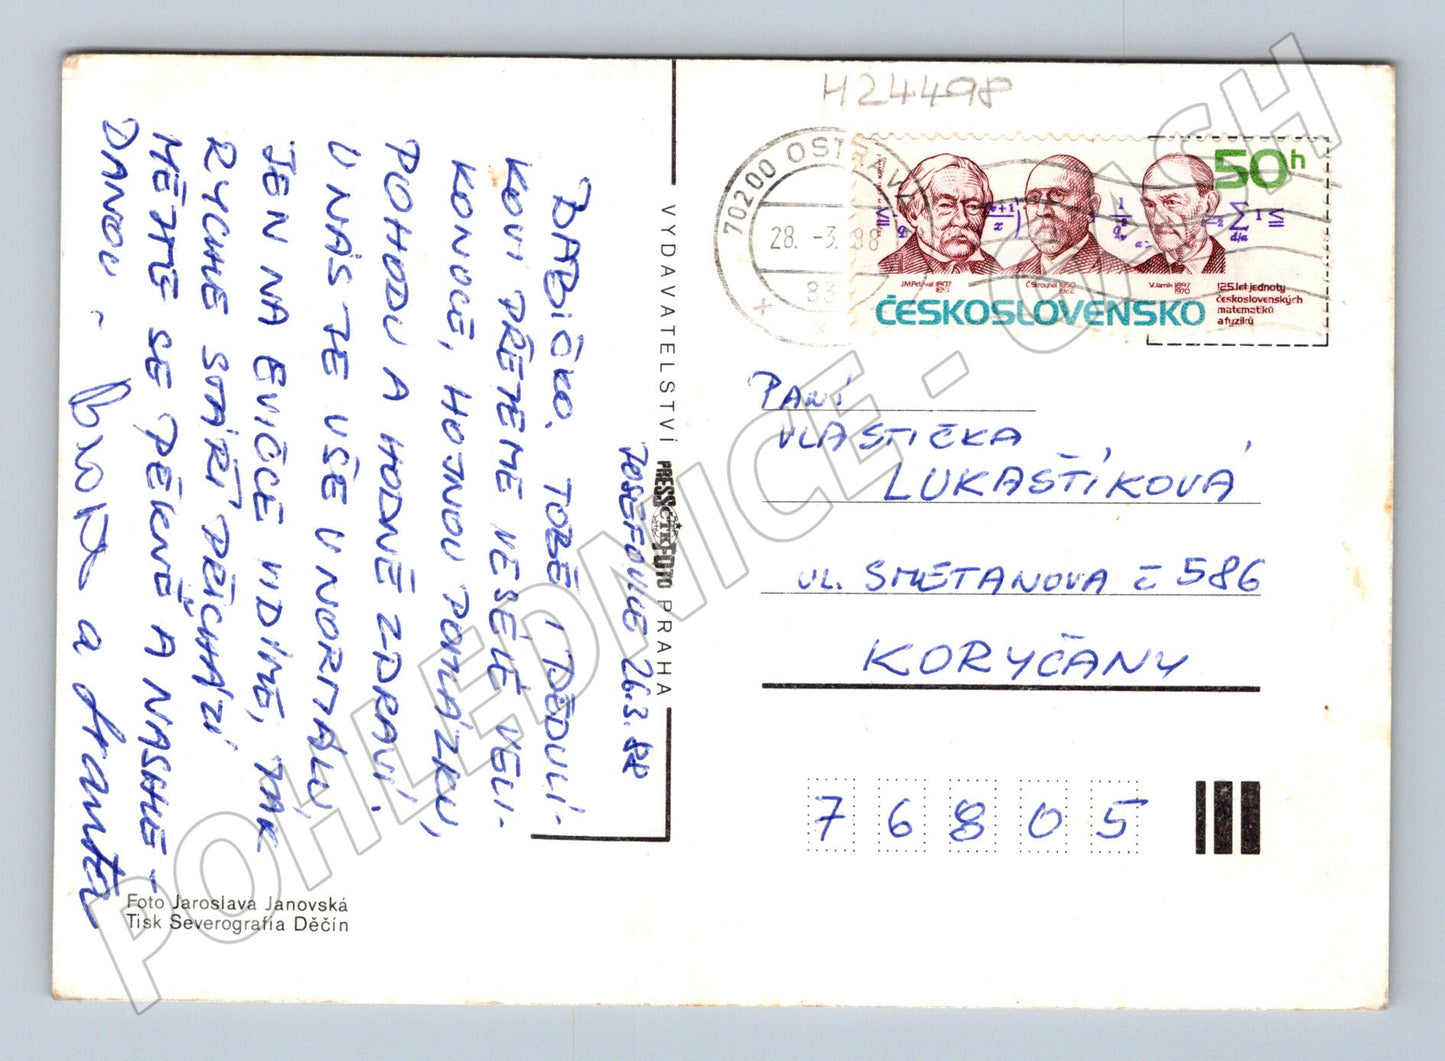 H24498
70200 OSTRAVA
28. -3. 88
50h
J.M.Petzval 1807 1891
Č.Strouhal 1850 1922
V.Jarník 1897 1970
125.let jednoty
československých
matematiků
a fyziků
ČESKOSLOVENSKO
JOSEFOVICE 26.3.88
BABIČKO, TOBĚ I DĚDULÍ-
KOVI PŘEJEME VESELÉ VELI-
KONOCE, HOJNOU POMLÁZKU,
POHODU A HODNĚ ZDRAVÍ.
U NÁS JE VŠE V NORMÁLU,
JEN NA EVIČCE VIDÍME, JAK
RYCHLE STÁŘÍ PŘICHÁZÍ
MĚJTE SE PĚKNĚ A NASHLE-
DANOU.
a Franta
VYDAVATELSTVÍ PRESSFOTO PRAHA
ČTK
Paní
VLASTIČKA
LUKAŠTÍKOVÁ
UL. SMETANOVA č 586
KORYČANY
76805
Foto Jaroslava Janovská
Tisk Severografia Děčín
POHLEDNICE - CASH